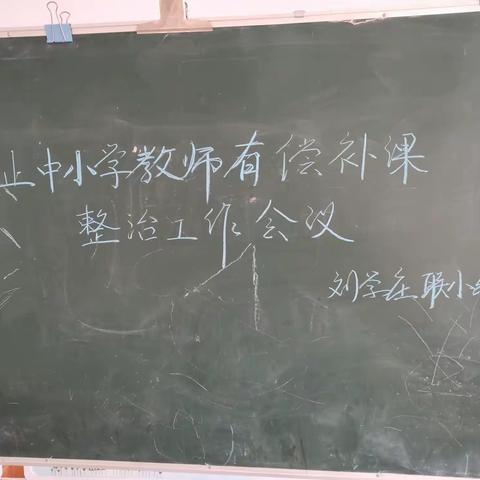 止中小学教师有偿补课
整治工作会议
刘学庄联小